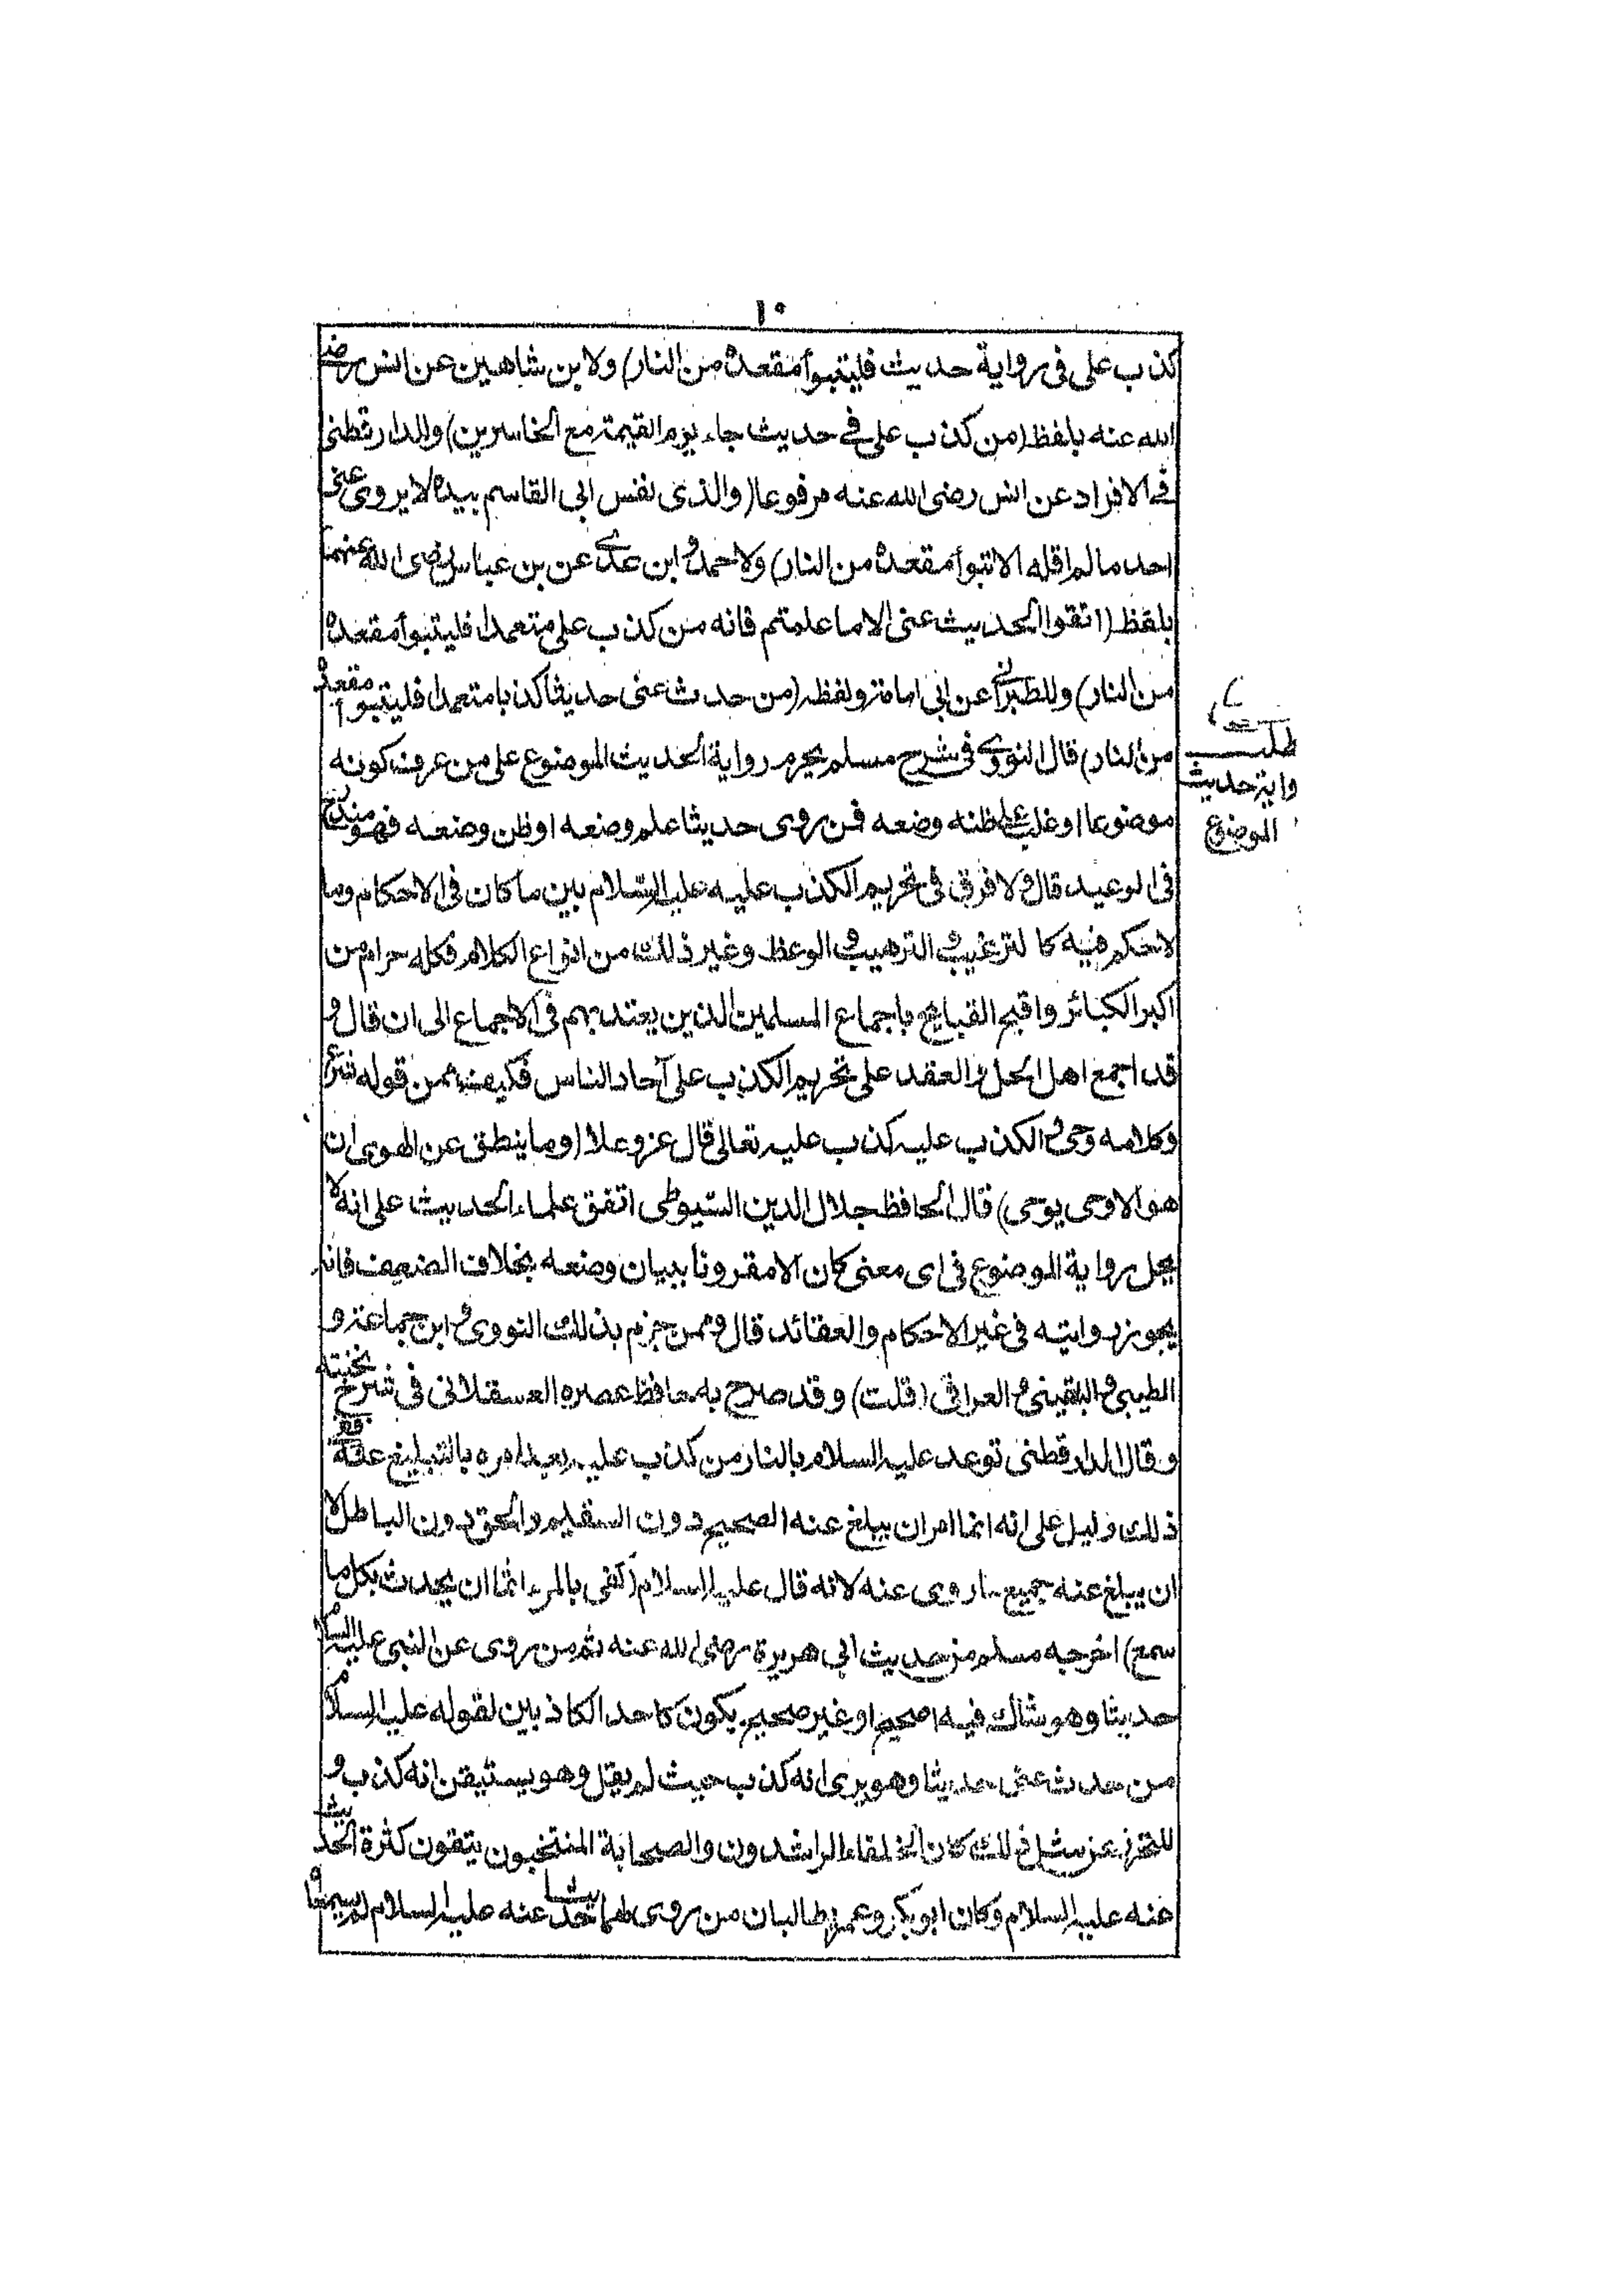 ١٠
كذب على فى رواية حديث فليتبوأ مقعده من النار) ولابن شاهين عن انس رضى
الله عنه بلفظ (من كذب على فى حديث جاء يوم القيمة مع الخاسرين) والدارقطنى
فى الافراد عن انس رضى الله عنه مرفوعا (والذى نفس ابى القاسم بيده لا يروى عنى
احد ما لم اقله الا تبوأ مقعده من النار) ولاحمد وابن عدى عن بن عباس رضى الله عنهما
بلفظ (اتقوا الحديث عنى الا ما علمتم فانه من كذب على متعمدا فليتبوأ مقعده
من النار) وللطبرانى عن ابى امامة ولفظه (من حدث عنى حديثا كذبا متعمدا فليتبوأ مقعده
من النار) قال النووى فى شرح مسلم يحرم رواية الحديث الموضوع على من عرف كونه
موضوعا او غلب على ظنه وضعه فمن روى حديثا علم وضعه او ظن وضعه فهو مندرج
فى الوعيد قال ولا فرق فى تحريم الكذب عليه عليه السلام بين ما كان فى الاحكام وما
لا حكم فيه كا لترغيب والترهيب والوعظ وغير ذلك من انواع الكلام فكله حرام من
اكبر الكبائر واقبح القبايح باجماع المسلمين الذين يعتد بهم فى الاجماع الى ان قال و
قد اجمع اهل الحل والعقد على تحريم الكذب على آحاد الناس فكيف بمن قوله شرع
وكلامه وحى والكذب عليه كذب عليه تعالى قال عز وعلا (وما ينطق عن الهوى ان
هو الا وحى يوحى) قال الحافظ جلال الدين السيوطى اتفق علماء الحديث على انه لا
يحل رواية الموضوع فى اى معنى كان الا مقرونا ببيان وضعه بخلاف الضعيف فانه
يجوز روايته فى غير الاحكام والعقائد قال وممن جزم بذلك النووى وابن جماعة و
الطيبى والبلقينى والعراقى (قلت) وقد صرح به حافظ عصره العسقلانى فى شرح نخبته
وقال الدارقطنى توعد عليه السلام بالنار من كذب عليه بعد امره بالتبليغ عنه ففى
ذلك دليل على انه انما امر ان يبلغ عنه الصحيح دون السقيم والحق دون الباطل لا
ان يبلغ عنه جميع ما روى عنه لانه قال عليه السلام (كفى بالمرء اثما ان يحدث بكل ما
سمع) اخرجه مسلم من حديث ابى هريرة رضى الله عنه ثم من روى عن النبى عليه السلام
حديثا وهو شاك فيه اصحيح او غير صحيح يكون كاحد الكاذبين لقوله عليه السلام
من حدث عنى حديثا وهو يرى انه كذب حيث لم يقل وهو يستيقن انه كذب و
للتحرز عن مثل ذلك كان الخلفاء الراشدون والصحابة المنتخبون يتقون كثرة الحديث
عنه عليه السلام وكان ابو بكر وعمر يطالبان من روى لهما حديثا عنه عليه السلام لم يسمعاه
طلب
واية حديث
الموضوع